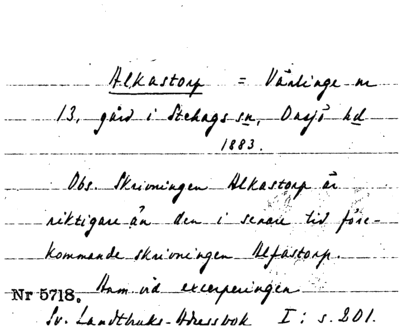 Alkastorp = Vänlinge nr
13, gård i Stehags sn, Onsjö hd
1883.
Obs. Skrivningen Alkastorp är
riktigare än den i senare tid före-
kommande skrivningen Alfastorp.
Anm vid excerperingen
Nr 5718.
Sv. Landtbruks-Adressbok I: s. 201.